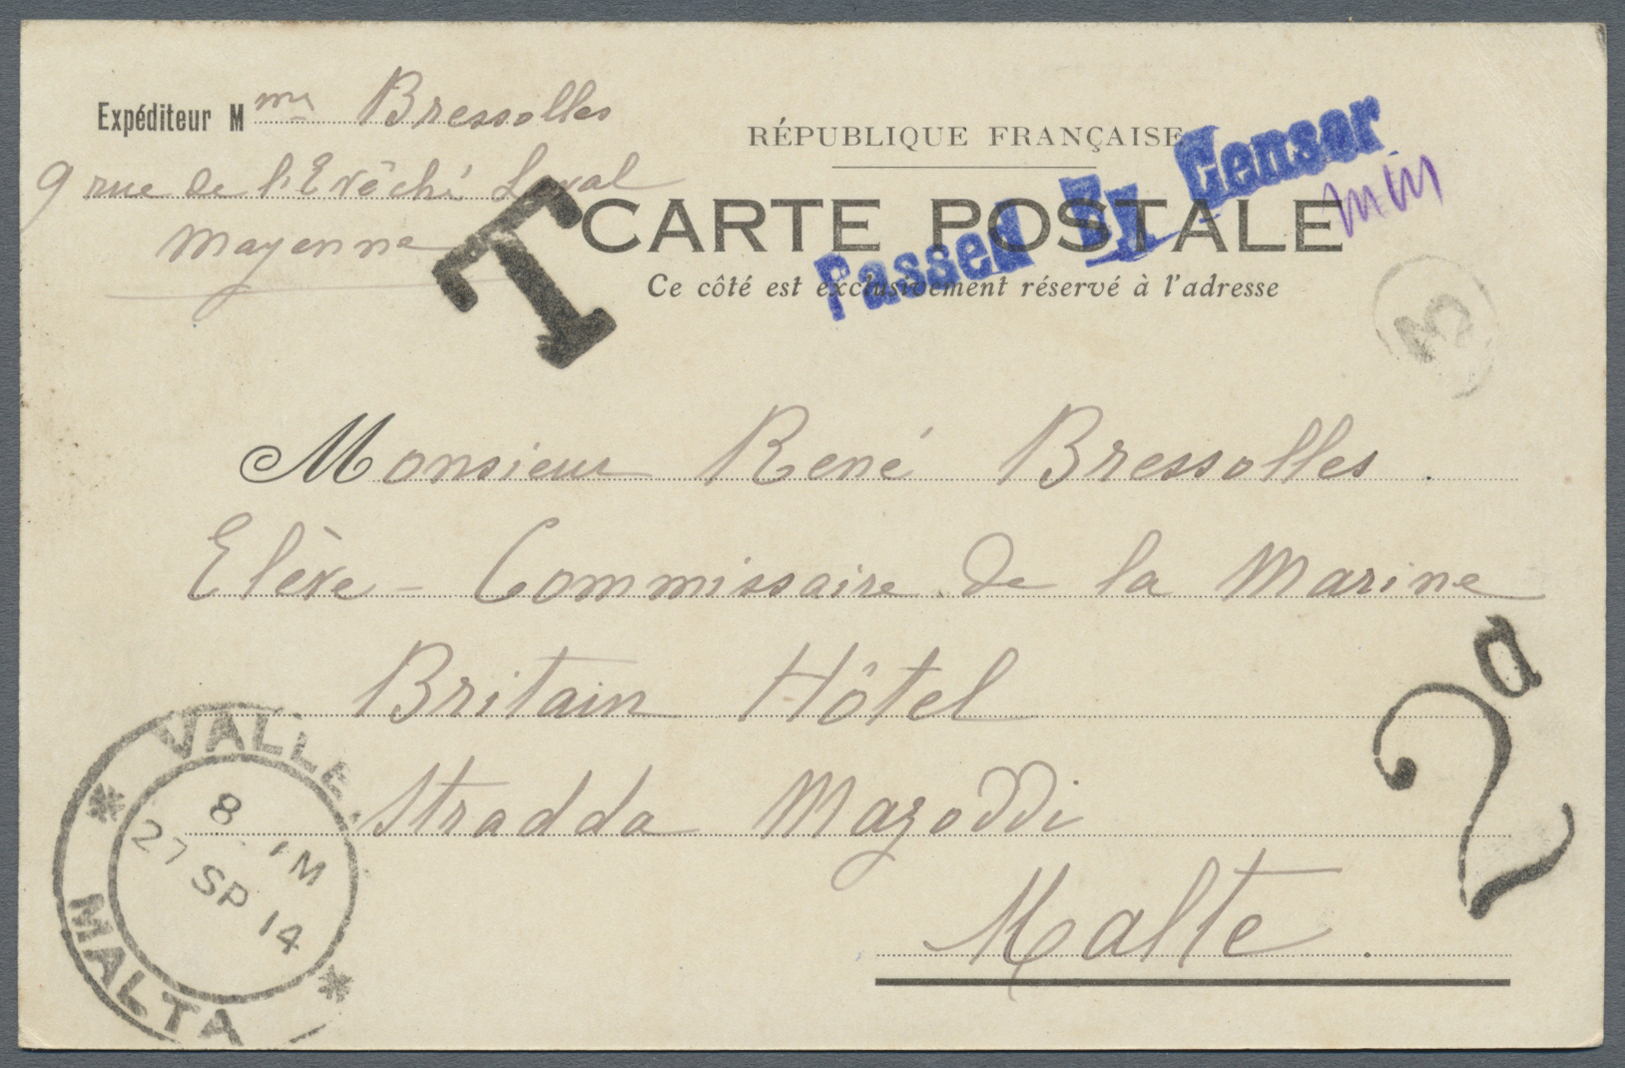 Expéditeur Mme Bressolles
9 rue de l'Evêché Laval
Mayenne
RÉPUBLIQUE FRANÇAISE
CARTE POSTALE
Ce côté est exclusivement réservé à l'adresse
Passed By Censor
T
3
Monsieur René Bressolles.
Elève-Commissaire de la Marine
Britain Hôtel
Stradda Mazoddi
Malte.
2d
VALLE
8 M
27 SP 14
MALTA